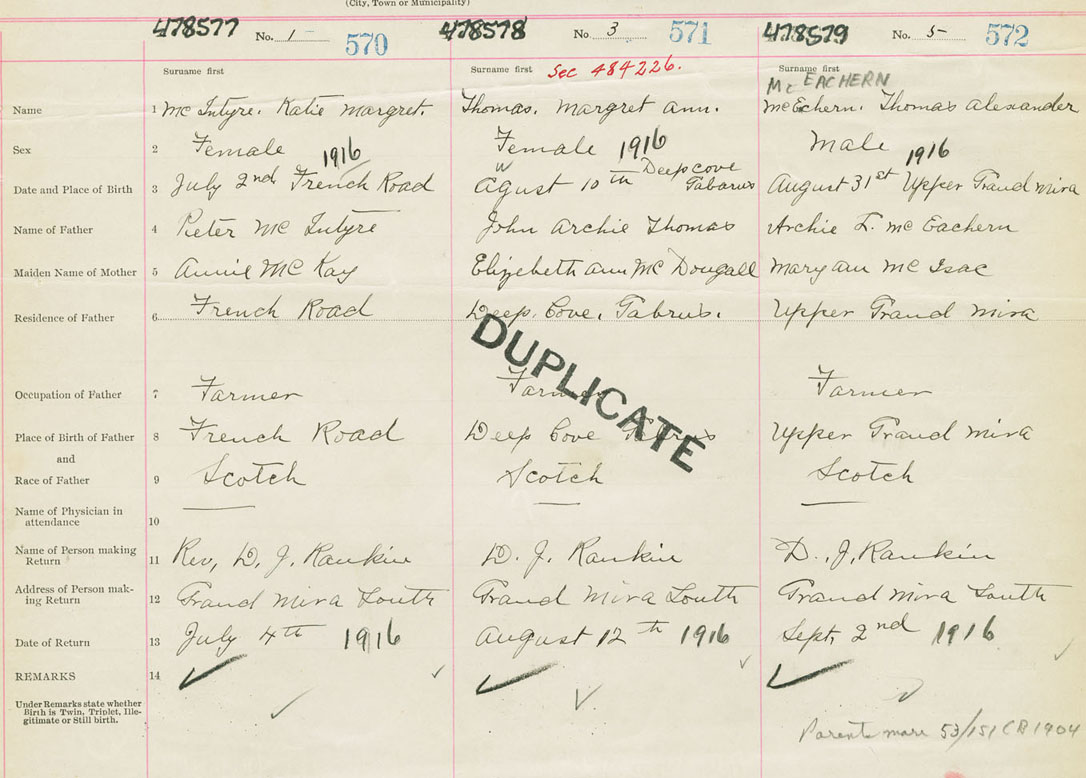 (City, Town or Municipality)
478577 No. 1 570 478578 No. 3 571 478579 No. 5 572
Surname first Surname first Sec 484226. Surname first
Mc EACHERN
Name 1 Mc Intyre. Katie Margret. Thomas. Margret Ann. McEchern. Thomas Alexander
Sex 2 Female 1916 Female 1916 Male 1916
Date and Place of Birth 3 July 2nd French Road Agust 10th Deep cove Gabarus August 31st Upper Grand Mira
Name of Father 4 Peter Mc Intyre John Archie Thomas Archie F. Mc Eachern
Maiden Name of Mother 5 Annie Mc Kay Elizebeth Ann Mc Dougall Mary Ann Mc Isac
Residence of Father 6 French Road Deep Cove. Gabrus. Upper Grand Mira
DUPLICATE
Occupation of Father 7 Farmer Farmer Farmer
Place of Birth of Father 8 French Road Deep Cove Gabrus Upper Grand Mira
and
Race of Father 9 Scotch Scotch Scotch
Name of Physician in
attendance 10
Name of Person making
Return 11 Rev, D. J. Rankin D. J. Rankin D. J. Rankin
Address of Person mak-
ing Return 12 Grand Mira South Grand Mira South Grand Mira South
Date of Return 13 July 4th 1916 August 12th 1916 Sept. 2nd 1916
REMARKS 14
Under Remarks state whether
Birth is Twin, Triplet, Ille-
gitimate or Still birth.
Parents marr 53/151 CB 1904